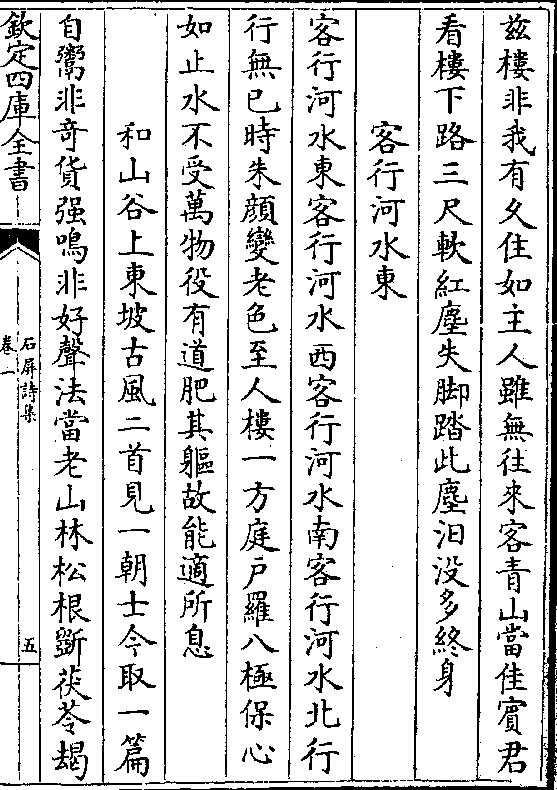 兹樓非我有久住如主人雖無往來客青山當佳賔君
看樓下路三尺軟紅塵失脚踏此塵汨没多終身
客行河水東
客行河水東客行河水西客行河水南客行河水北行
行無已時朱顔變老色至人樓一方庭户羅八極保心
如止水不受萬物役有道肥其軀故能適所息
和山谷上東坡古風二首見一朝士今取一篇
自鬻非竒貨强鳴非好聲法當老山林松根斸茯苓朅
欽定四庫全書
石屏詩集
卷一
五